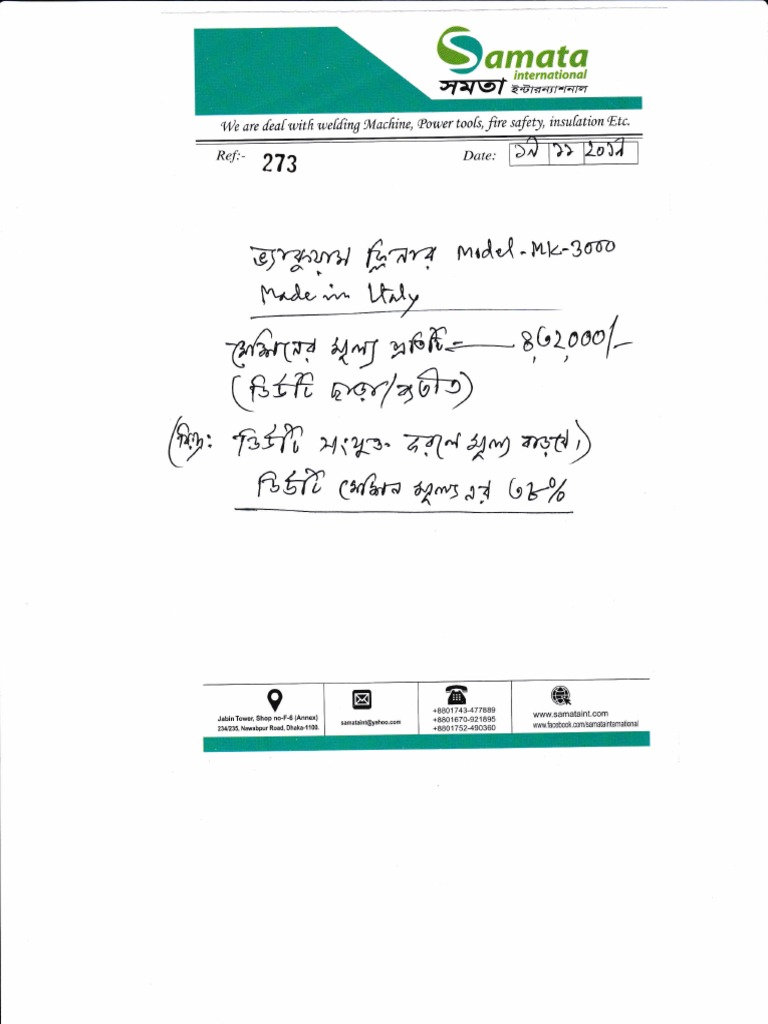 Samata
international
সমতা ইন্টারন্যাশনাল
We are deal with welding Machine, Power tools, fire safety, insulation Etc.
Ref:- 273
Date: ১৭ ১১ ২০১৭
ভ্যাকুয়াম ক্লিনার Model-MK-3000
Made in Italy
মেশিনের মূল্য প্রতিটি = ৪,৩২,০০০/-
(ডিউটি ছাড়া/ব্যতীত)
ডিউটি সংযুক্ত করলে মূল্য বাড়বে।)
ডিউটি মেশিন মূল্য এর ৩৮%
Jabin Tower, Shop no-F-6 (Annex)
234/235, Nawabpur Road, Dhaka-1100.
samataint@yahoo.com
+8801743-477889
+8801670-921895
+8801752-490360
www.samataint.com
www.facebook.com/samatainternational